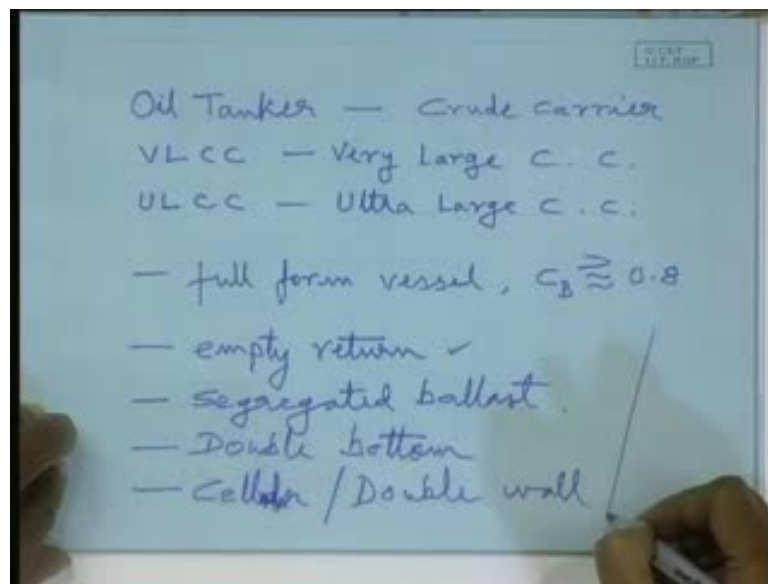 I.I.T. KGP
Oil Tanker — Crude carrier
VLCC — Very Large C. C.
ULCC — Ultra Large C. C.
— full form vessel, C_B ≳≈ 0.8
— empty return ✓
— segregated ballast.
— Double bottom
— Cellular / Double wall